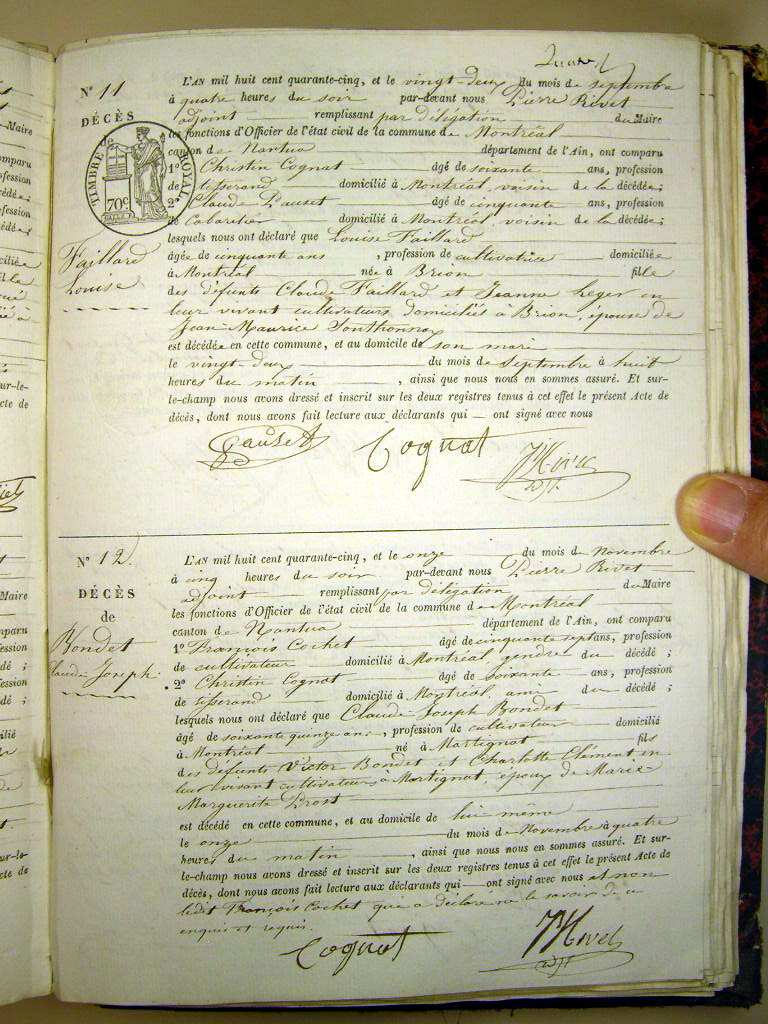 N° 11
DÉCÈS
TIMBRE ROYAL
70c
Faillard
Louise
L'AN mil huit cent quarante-cinq, et le vingt-deux du mois de septembre
à quatre heures du soir par-devant nous Pierre Rivet
adjoint remplissant par délégation du Maire
les fonctions d'Officier de l'état civil de la commune de Montréal
canton de Nantua département de l'Ain, ont comparu
1° Christin Cognat âgé de soixante ans, profession
de tisserand domicilié à Montréal, voisin de la décédée;
2° Claude Pauset âgé de cinquante ans, profession
de Cabaretier domicilié à Montréal, voisin de la décédée;
lesquels nous ont déclaré que Louise Faillard
âgée de cinquante ans, profession de cultivatrice domiciliée
à Montréal née à Brion fille
des défunts Claude Faillard et Jeanne Léger en
leur vivant cultivateurs domiciliés à Brion, épouse de
Jean-Maurice Sonthonnax
est décédée en cette commune, et au domicile de son mari
le vingt-deux du mois de septembre à huit
heures du matin, ainsi que nous nous en sommes assuré. Et sur-
le-champ nous avons dressé et inscrit sur les deux registres tenus à cet effet le présent Acte de
décès, dont nous avons fait lecture aux déclarants qui — ont signé avec nous
Pauset Cognat
adjt.
N° 12
DÉCÈS
de
Bondet
Claude Joseph.
L'AN mil huit cent quarante-cinq, et le onze du mois de novembre
à cinq heures du soir par-devant nous Pierre Rivet
adjoint remplissant par délégation du Maire
les fonctions d'Officier de l'état civil de la commune de Montréal
canton de Nantua département de l'Ain, ont comparu
1° François Cochet âgé de cinquante sept ans, profession
de cultivateur domicilié à Montréal, gendre du décédé;
2° Christin Cognat âgé de soixante ans, profession
de tisserand domicilié à Montréal, ami du décédé;
lesquels nous ont déclaré que Claude Joseph Bondet
âgé de soixante quinze ans, profession de cultivateur domicilié
à Montréal né à Martignat fils
des défunts Victor Bondet et Charlotte Elément en
leur vivant cultivateurs à Martignat, époux de Marie
Marguerite Prost
est décédé en cette commune, et au domicile de lui même
le onze du mois de Novembre à quatre
heures du matin, ainsi que nous nous en sommes assuré. Et sur-
le-champ nous avons dressé et inscrit sur les deux registres tenus à cet effet le présent Acte de
décès, dont nous avons fait lecture aux déclarants qui — ont signé avec nous et non
ledit François Cochet qui a déclaré ne le savoir de ce
enquis et requis.
Cognat Rivet
adjt